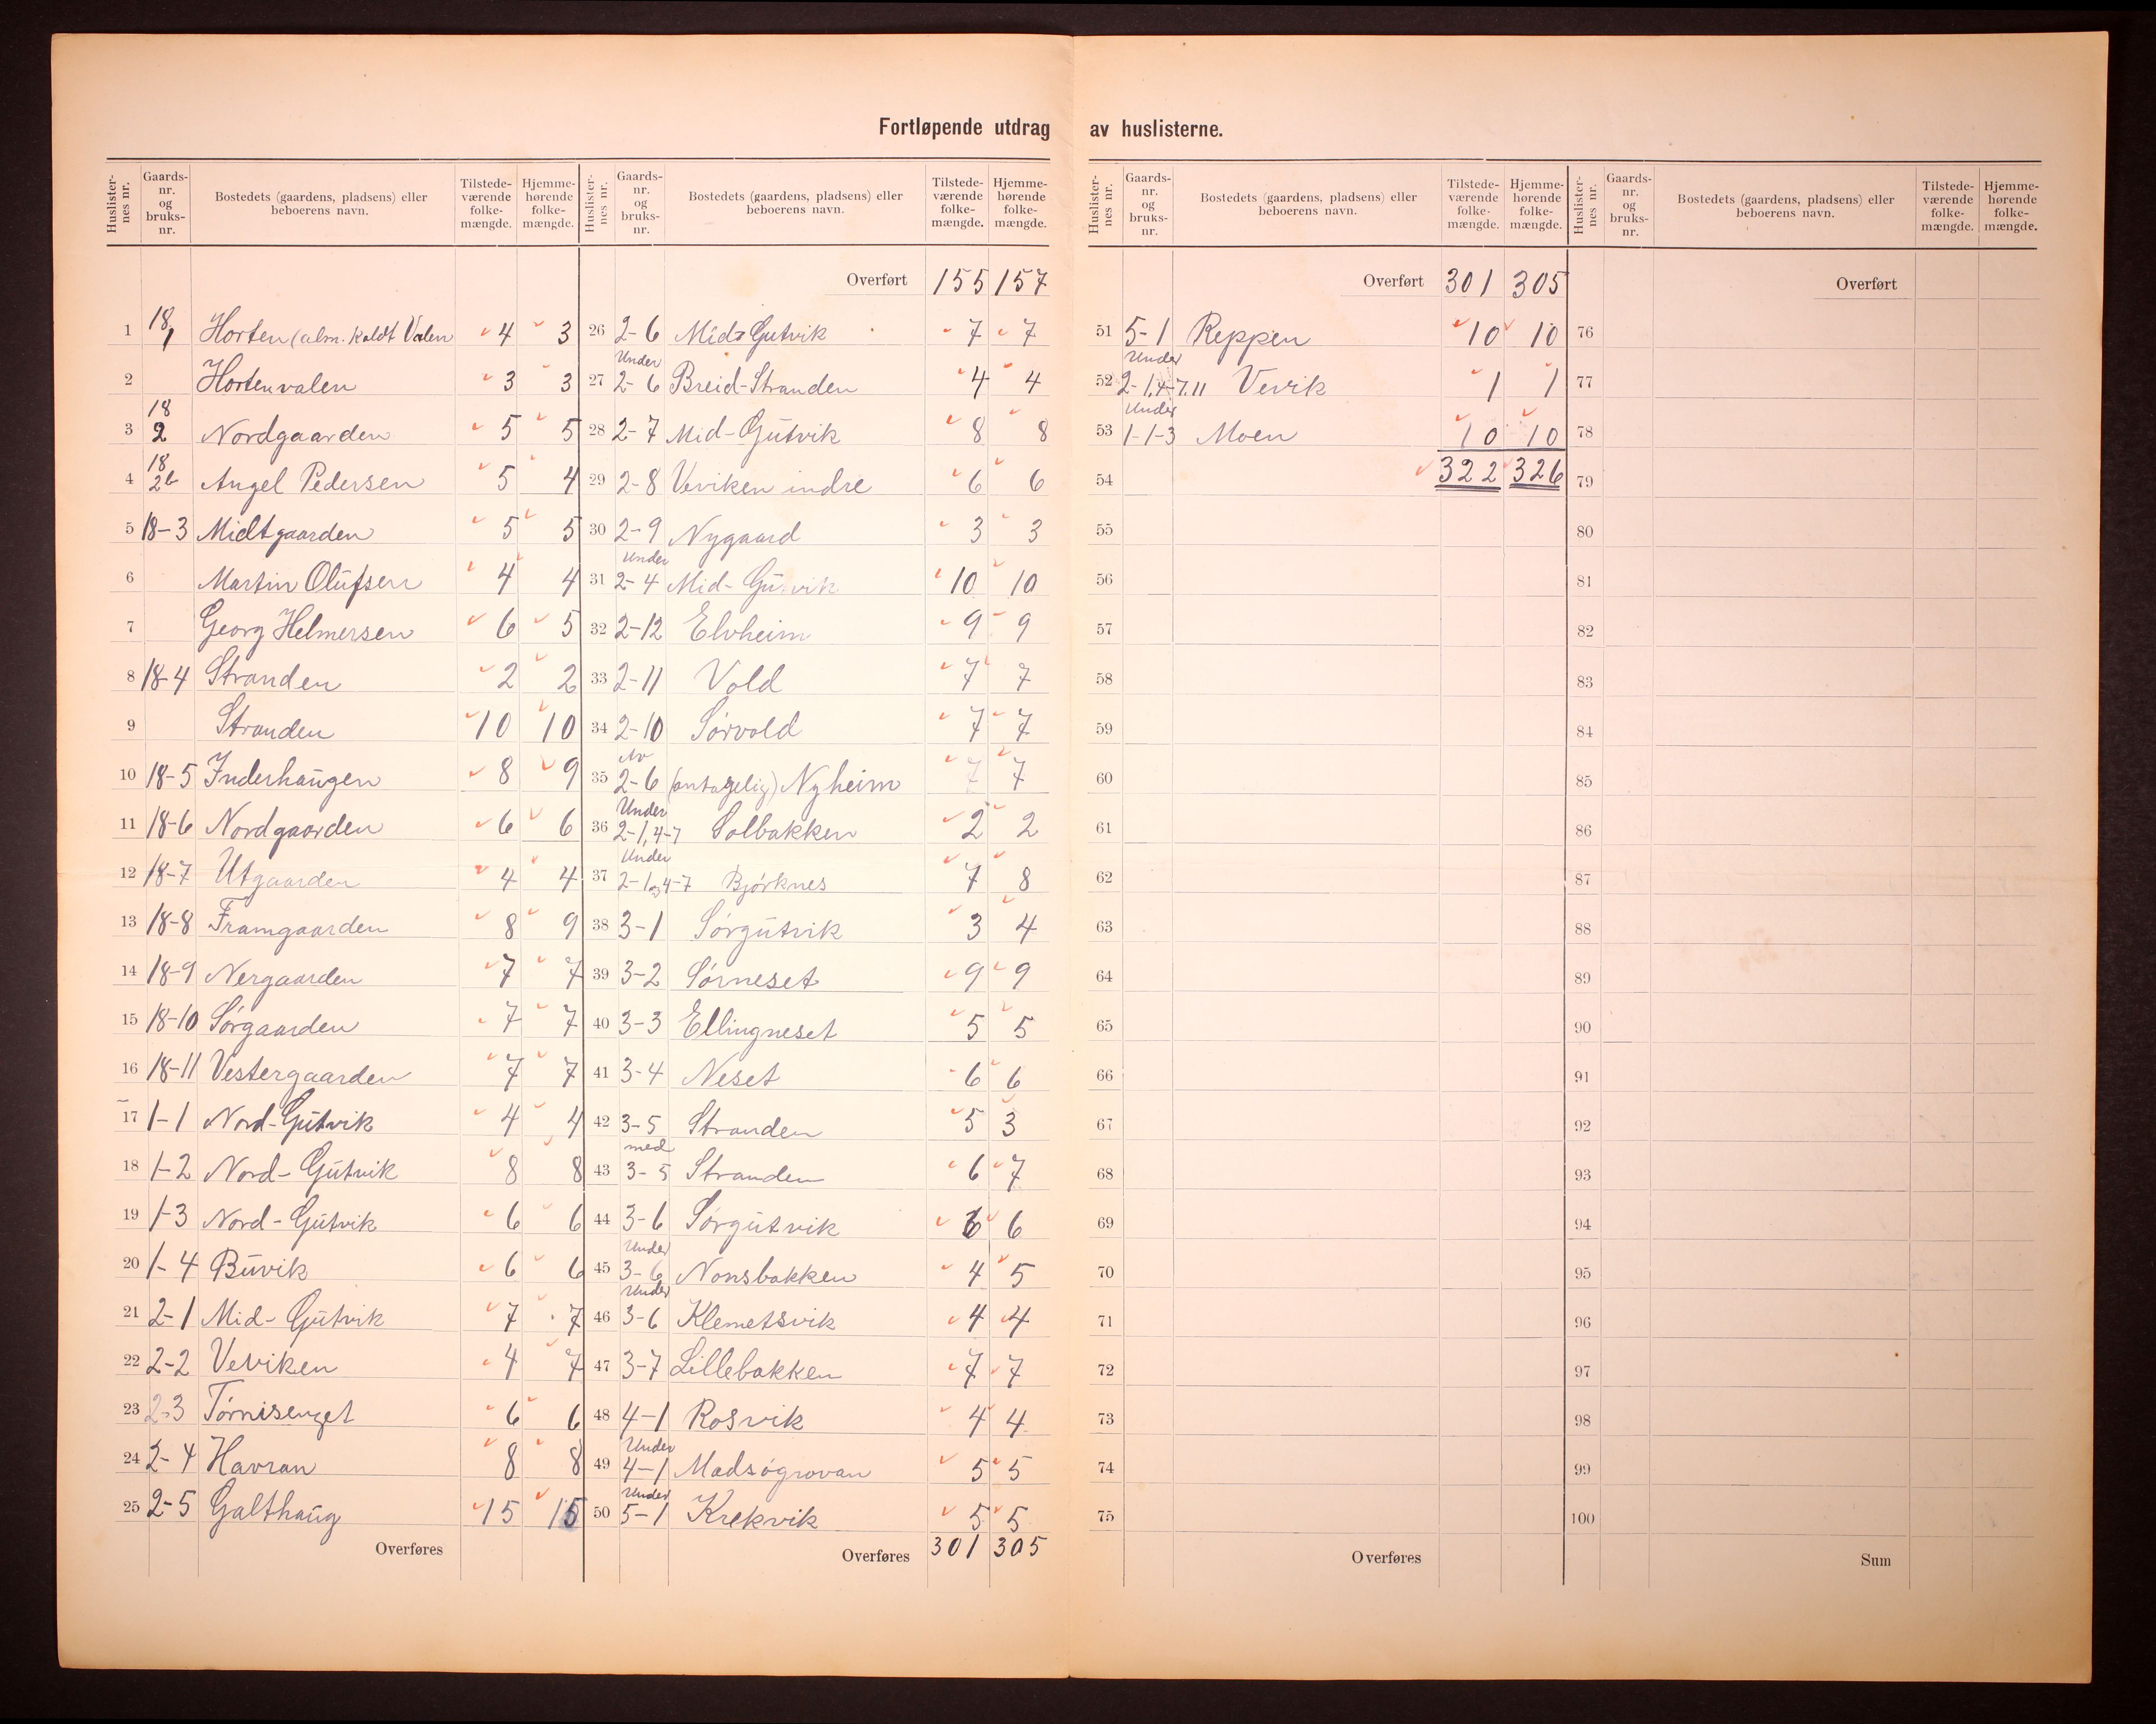 Fortløpende utdrag av huslisterne.
Huslister-nes nr. | Gaards-nr. og bruks-nr. | Bostedets (gaardens, pladsens) eller beboerens navn. | Tilstede-værende folke-mængde. | Hjemme-hørende folke-mængde.
1 18,1 Horten (alm. kaldt Valen 4 3
2 Hortenvalen 3 3
3 18 2 Nordgaarden 5 5
4 18 2b Angel Pedersen 5 4
5 18-3 Midtgaarden 5 5
6 Martin Olufsen 4 4
7 Georg Helmersen 6 5
8 18-4 Stranden 2 2
9 Stranden 10 10
10 18-5 Inderhaugen 8 9
11 18-6 Nordgaarden 6 6
12 18-7 Utgaarden 4 4
13 18-8 Framgaarden 8 9
14 18-9 Nergaarden 7 7
15 18-10 Sørgaarden 7 7
16 18-11 Vestergaarden 7 7
17 1-1 Nord-Gutvik 4 4
18 1-2 Nord-Gutvik 8 8
19 1-3 Nord-Gutvik 6 6
20 1-4 Buvik 6 6
21 2-1 Mid-Gutvik 7 7
22 2-2 Veviken 4 7
23 2-3 Tørnisenget 6 6
24 2-4 Havran 8 8
25 2-5 Galthaug 15 15
Overføres
Huslister-nes nr. | Gaards-nr. og bruks-nr. | Bostedets (gaardens, pladsens) eller beboerens navn. | Tilstede-værende folke-mængde. | Hjemme-hørende folke-mængde.
Overført 155 157
26 2-6 Mid-Gutvik 7 7
27 Under 2-6 Breid-Stranden 4 4
28 2-7 Mid-Gutvik 8 8
29 2-8 Veviken indre 6 6
30 2-9 Nygaard 3 3
31 Under 2-4 Mid-Gutvik 10 10
32 2-12 Elvheim 9 9
33 2-11 Vold 7 7
34 2-10 Sørvold 7 7
35 Av 2-6 (antagelig) Nyheim 7 7
36 Under 2-1,4-7 Solbakken 2 2
37 Under 2-1,4-7 Bjørknes 7 8
38 3-1 Sørgutvik 3 4
39 3-2 Sørneset 9 9
40 3-3 Ellingneset 5 5
41 3-4 Neset 6 6
42 3-5 Stranden 5 3
43 med 3-5 Stranden 6 7
44 3-6 Sørgutvik 6 6
45 Under 3-6 Nonsbakken 4 5
46 Under 3-6 Klemetsvik 4 4
47 3-7 Lillebakken 7 7
48 4-1 Rosvik 4 4
49 Under 4-1 Madsøgrovan 5 5
50 Under 5-1 Krekvik 5 5
Overføres 301 305
Huslister-nes nr. | Gaards-nr. og bruks-nr. | Bostedets (gaardens, pladsens) eller beboerens navn. | Tilstede-værende folke-mængde. | Hjemme-hørende folke-mængde.
Overført 301 305
51 5-1 Reppen 10 10
52 Under 2-1,4-7.11 Vevik 1 1
53 Under 1-1-3 Moen 10 10
54 322 326
55
56
57
58
59
60
61
62
63
64
65
66
67
68
69
70
71
72
73
74
75
Overføres
Huslister-nes nr. | Gaards-nr. og bruks-nr. | Bostedets (gaardens, pladsens) eller beboerens navn. | Tilstede-værende folke-mængde. | Hjemme-hørende folke-mængde.
Overført
76
77
78
79
80
81
82
83
84
85
86
87
88
89
90
91
92
93
94
95
96
97
98
99
100
Sum